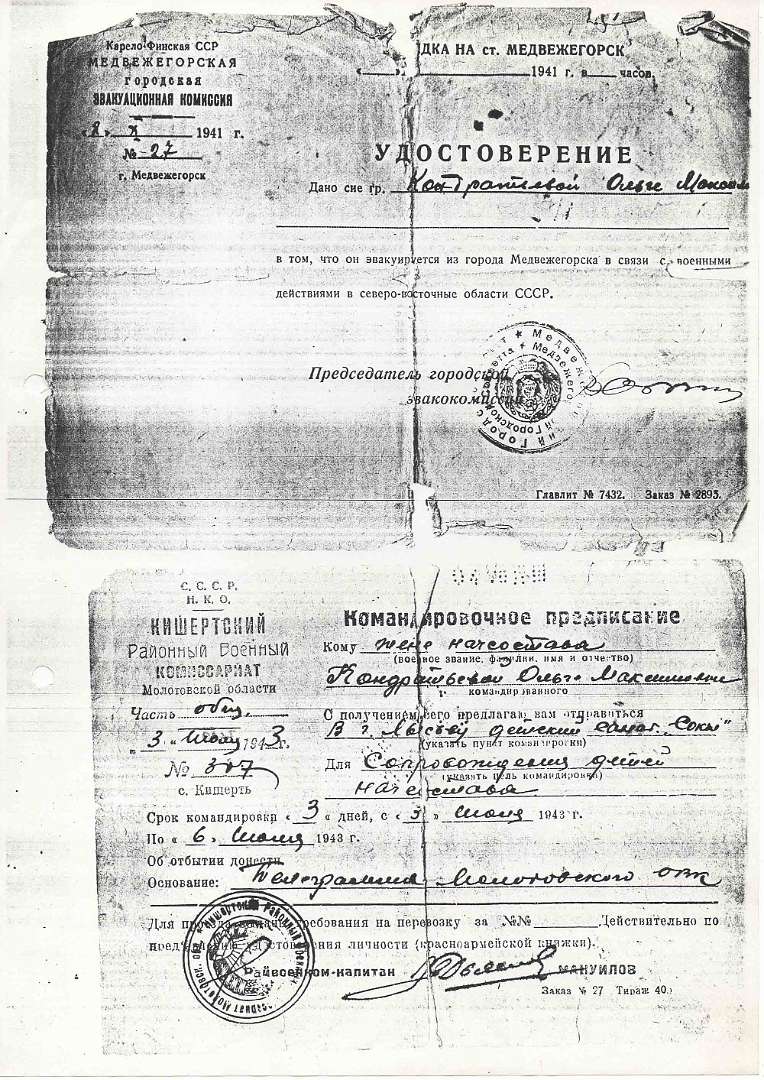 Карело-Финская ССР
МЕДВЕЖЕГОРСКАЯ
городская
ЭВАКУАЦИОННАЯ КОМИССИЯ
1941 г.
№ 27
г. Медвежегорск
ДКА НА ст. МЕДВЕЖЕГОРСК
« » 1941 г. в часов
УДОСТОВЕРЕНИЕ
Дано сие гр. Кондратьевой Ольге
в том, что он эвакуируется из города Медвежегорска в связи с военными
действиями в северо-восточные области СССР.
Председатель городской
эвакокомиссии
Главлит № 7432. Заказ № 2895.
С. С. С. Р.
Н. К. О.
КИШЕРТСКИЙ
Районный Военный
КОМИССАРИАТ
Молотовской области
Часть общ.
„3 „ Июля 1943 г.
№ 307
с. Кишерть
Командировочное предписание
Кому жене начсостава
(военное звание, фамилия, имя и отчество)
Кондратьевой Ольге Максимовне
командированного
С получением сего предлагаю вам отправиться
В г. Лысьву детский санат. „
(указать пункт командировки)
Для Сопровождения детей
(указать цель командировки)
начсостава
Срок командировки « 3 « дней, с « 3 » Июля 1943 г.
По « 6 » Июля 1943 г.
Об отбытии донести
Основание: Телеграмма Молотовского овк
Для проезда требования на перевозку за №№ Действительно по
предъявлении удостоверения личности (красноармейской книжки).
Райвоенком-капитан МАНУИЛОВ
Заказ № 27 Тираж 40